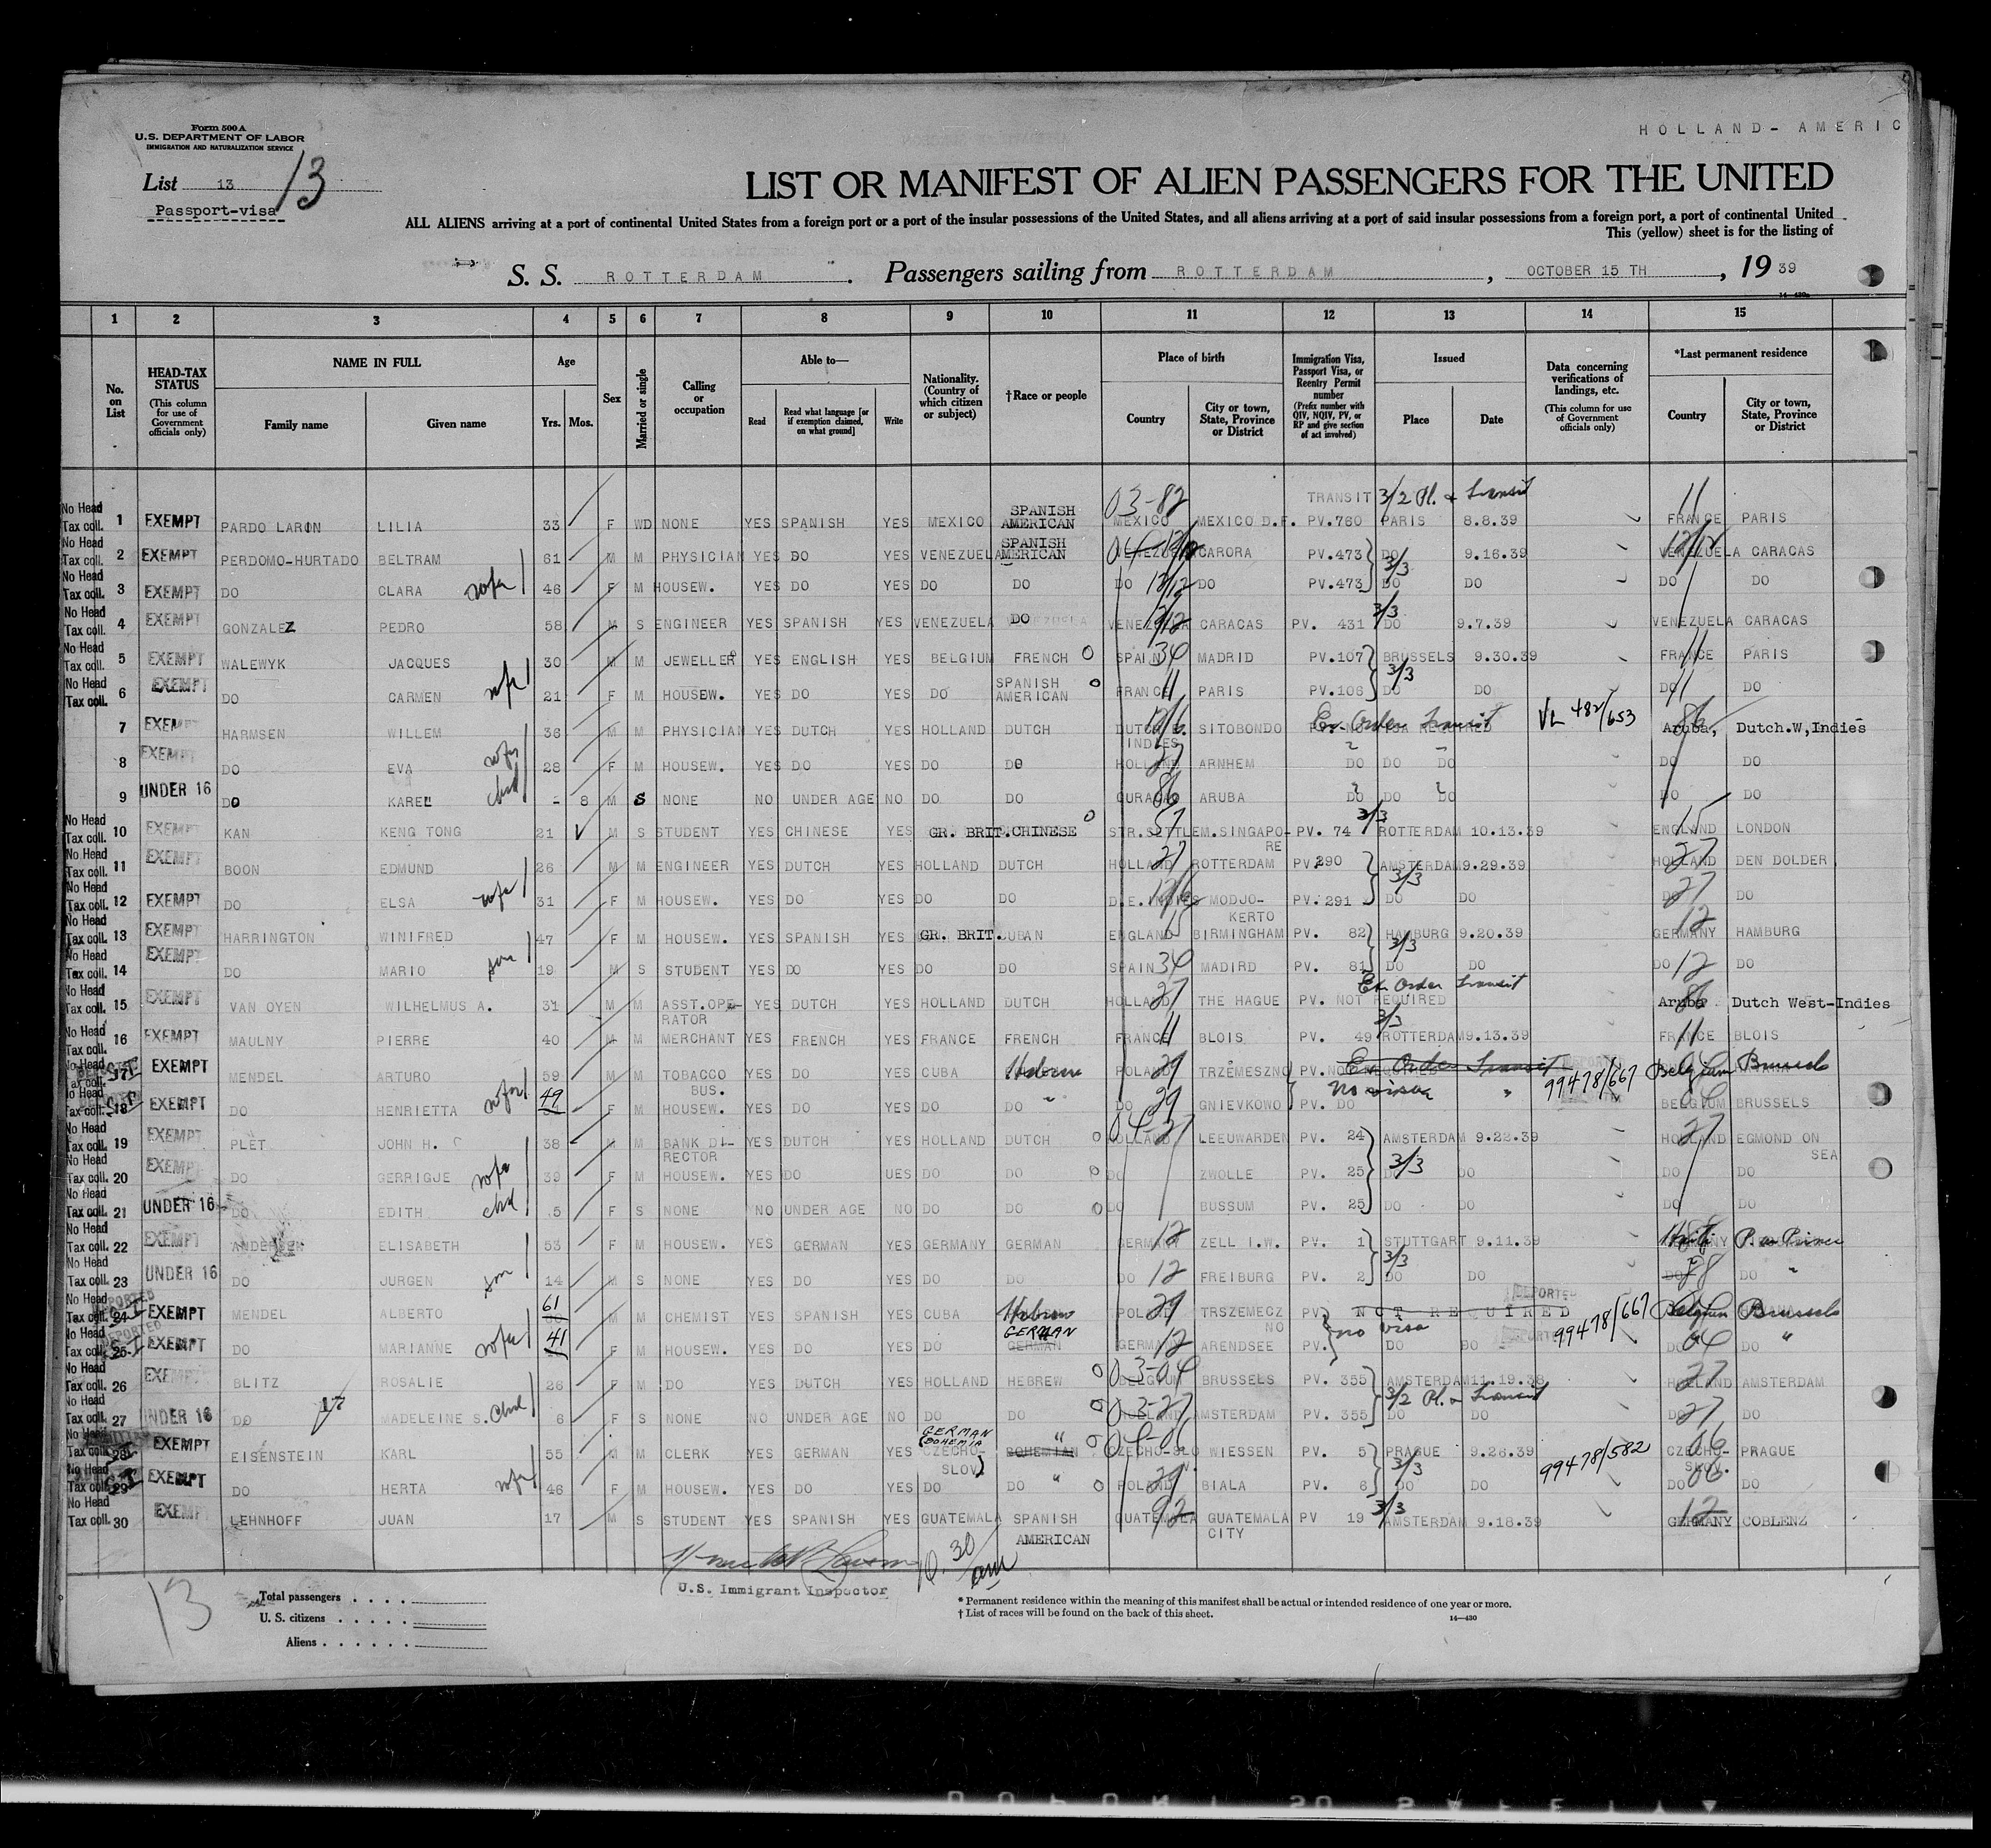 Form 500 A
U.S. DEPARTMENT OF LABOR
IMMIGRATION AND NATURALIZATION SERVICE
HOLLAND- AMERIC
List 13 13
Passport-visa
LIST OR MANIFEST OF ALIEN PASSENGERS FOR THE UNITED
ALL ALIENS arriving at a port of continental United States from a foreign port or a port of the insular possessions of the United States, and all aliens arriving at a port of said insular possessions from a foreign port, a port of continental United
This (yellow) sheet is for the listing of
S. S. ROTTERDAM. Passengers sailing from ROTTERDAM, OCTOBER 15 TH, 19 39
14-430a
1 2 3 4 5 6 7 8 9 10 11 12 13 14 15
No. on List
HEAD-TAX STATUS (This column for use of Government officials only)
NAME IN FULL
Family name Given name
Age
Yrs. Mos.
Sex
Married or single
Calling or occupation
Able to—
Read Read what language [or if exemption claimed, on what ground] Write
Nationality. (Country of which citizen or subject)
†Race or people
Place of birth
Country City or town, State, Province or District
Immigration Visa, Passport Visa, or Reentry Permit number (Prefix number with QIV, NQIV, PV, or RP and give section of act involved)
Issued
Place Date
Data concerning verifications of landings, etc. (This column for use of Government officials only)
*Last permanent residence
Country City or town, State, Province or District
03-82 TRANSIT 3/2 Pl. & Transit 11
No Head Tax coll. 1 EXEMPT PARDO LARIN LILIA 33 F WD NONE YES SPANISH YES MEXICO SPANISH AMERICAN MEXICO MEXICO D.F. PV.760 PARIS 8.8.39 FRANCE PARIS
No Head Tax coll. 2 EXEMPT PERDOMO-HURTADO BELTRAM 61 M M PHYSICIAN YES DO YES VENEZUELA SPANISH AMERICAN VENEZUELA CARORA PV.473 DO 9.16.39 VENEZUELA CARACAS
No Head Tax coll. 3 EXEMPT DO CLARA wife 46 F M HOUSEW. YES DO YES DO DO DO DO PV.473 3/3 DO DO DO DO
No Head Tax coll. 4 EXEMPT GONZALEZ PEDRO 58 M S ENGINEER YES SPANISH YES VENEZUELA DO VENEZUELA CARACAS PV. 431 3/3 DO 9.7.39 VENEZUELA CARACAS
No Head Tax coll. 5 EXEMPT WALEWYK JACQUES 30 M M JEWELLER YES ENGLISH YES BELGIUM FRENCH SPAIN 34 MADRID PV.107 BRUSSELS 9.30.39 FRANCE 11 PARIS
No Head Tax coll. 6 EXEMPT DO CARMEN wife 21 F M HOUSEW. YES DO YES DO SPANISH AMERICAN FRANCE 11 PARIS PV.106 3/3 DO DO DO 11 DO
7 EXEMPT HARMSEN WILLEM 36 M M PHYSICIAN YES DUTCH YES HOLLAND DUTCH DUTCH E. INDIES SITOBONDO Ex. Order Transit VL 482/653 Aruba, Dutch.W,Indies
8 EXEMPT DO EVA wife 28 F M HOUSEW. YES DO YES DO DO HOLLAND 27 ARNHEM DO DO DO DO DO
9 UNDER 16 DO KAREL child - 8 M S NONE NO UNDER AGE NO DO DO CURACAO 86 ARUBA DO DO DO DO DO
No Head Tax coll. 10 EXEMPT KAN KENG TONG 21 M S STUDENT YES CHINESE YES GR. BRIT. CHINESE STR.SETTLEM. SINGAPORE PV. 74 3/3 ROTTERDAM 10.13.39 ENGLAND 15 LONDON
No Head Tax coll. 11 EXEMPT BOON EDMUND 26 M M ENGINEER YES DUTCH YES HOLLAND DUTCH HOLLAND 27 ROTTERDAM PV.290 AMSTERDAM 9.29.39 HOLLAND 27 DEN DOLDER
No Head Tax coll. 12 EXEMPT DO ELSA wife 31 F M HOUSEW. YES DO YES DO DO D.E.INDIES MODJO-KERTO PV.291 3/3 DO DO DO 27 DO
No Head Tax coll. 13 EXEMPT HARRINGTON WINIFRED 47 F M HOUSEW. YES SPANISH YES GR. BRIT. CUBAN ENGLAND 15 BIRMINGHAM PV. 82 HAMBURG 9.20.39 GERMANY 12 HAMBURG
No Head Tax coll. 14 EXEMPT DO MARIO son 19 M S STUDENT YES DO YES DO DO SPAIN 34 MADIRD PV. 81 3/3 DO DO DO 12 DO
No Head Tax coll. 15 EXEMPT VAN OYEN WILHELMUS A. 31 M M ASST.OPE-RATOR YES DUTCH YES HOLLAND DUTCH HOLLAND 27 THE HAGUE PV. NOT REQUIRED Ex Order Transit Aruba 86 Dutch West-Indies
No Head Tax coll. 16 EXEMPT MAULNY PIERRE 40 M M MERCHANT YES FRENCH YES FRANCE FRENCH FRANCE 11 BLOIS PV. 49 3/3 ROTTERDAM 9.13.39 FRANCE 11 BLOIS
No Head Tax coll. 17 EXEMPT MENDEL ARTURO 59 M M TOBACCO BUS. YES DO YES CUBA Hebrew POLAND 29 TRZEMESZNO PV. Ex Order Transit No visa 99478/667 Belgium Brussels
No Head Tax coll. 18 EXEMPT DO HENRIETTA wife 49 F M HOUSEW. YES DO YES DO DO " DO 29 GNIEVKOWO PV. DO " BELGIUM BRUSSELS
No Head Tax coll. 19 EXEMPT PLET JOHN H. 38 M M BANK DI-RECTOR YES DUTCH YES HOLLAND DUTCH HOLLAND 04-27 LEEUWARDEN PV. 24 AMSTERDAM 9.22.39 HOLLAND 27 EGMOND ON SEA
No Head Tax coll. 20 EXEMPT DO GERRIGJE wife 39 F M HOUSEW. YES DO UES DO DO DO ZWOLLE PV. 25 3/3 DO DO DO
No Head Tax coll. 21 UNDER 16 DO EDITH chd 5 F S NONE NO UNDER AGE NO DO DO DO BUSSUM PV. 25 DO DO DO DO
No Head Tax coll. 22 EXEMPT ANDERSEN ELISABETH 53 F M HOUSEW. YES GERMAN YES GERMANY GERMAN GERMANY 12 ZELL I.W. PV. 1 STUTTGART 9.11.39 Haiti P. au Prince
No Head Tax coll. 23 UNDER 16 DO JURGEN son 14 M S NONE YES DO YES DO DO DO 12 FREIBURG PV. 2 3/3 DO DO DO 88 DO "
No Head Tax coll. 24 EXEMPT MENDEL ALBERTO 61 M M CHEMIST YES SPANISH YES CUBA Hebrew POLAND 29 TRSZEMECZNO PV. NOT REQUIRED no visa DEPORTED 99478/667 Belgium Brussels
No Head Tax coll. 25 EXEMPT DO MARIANNE wife 41 F M HOUSEW. YES DO YES DO GERMAN GERMANY 12 ARENDSEE PV. DO DO DO 04 "
No Head Tax coll. 26 EXEMPT BLITZ ROSALIE 26 F M DO YES DUTCH YES HOLLAND HEBREW 03-04 BELGIUM BRUSSELS PV. 355 AMSTERDAM 11.19.38 HOLLAND 27 AMSTERDAM
No Head Tax coll. 27 UNDER 16 DO 17 MADELEINE S. Child 6 F S NONE NO UNDER AGE NO DO DO 03-27 HOLLAND AMSTERDAM PV. 355 3/2 Pl. & Transit DO DO DO 27 DO
No Head Tax coll. 28 EXEMPT EISENSTEIN KARL 55 M M CLERK YES GERMAN YES GERMAN BOHEMIA CZECHO-SLOV. BOHEMIAN " CZECHO-SLO WIESSEN PV. 5 PRAGUE 9.26.39 99478/582 CZECHO-SLOV. 06 PRAGUE
No Head Tax coll. 29 EXEMPT DO HERTA wife 46 F M HOUSEW. YES DO YES DO DO " POLAND 29 BIALA PV. 6 3/3 DO DO DO 06 DO
No Head Tax coll. 30 EXEMPT LEHNHOFF JUAN 17 M S STUDENT YES SPANISH YES GUATEMALA SPANISH AMERICAN GUATEMALA 92 GUATEMALA CITY PV 19 3/3 AMSTERDAM 9.18.39 GERMANY 12 COBLENZ
10.30 am
U.S. Immigrant Inspector
13
Total passengers . . . .
U. S. citizens . . . . .
Aliens . . . . . .
* Permanent residence within the meaning of this manifest shall be actual or intended residence of one year or more.
† List of races will be found on the back of this sheet.
14—430